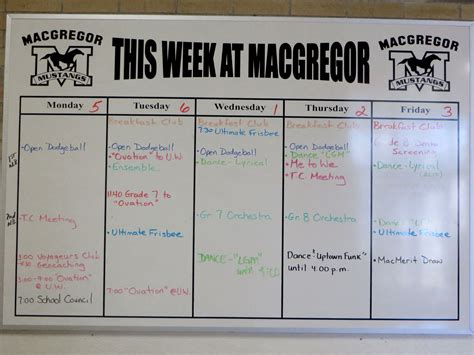 MACGREGOR
MUSTANGS
THIS WEEK AT MACGREGOR
MACGREGOR
MUSTANGS
Monday 5
Tuesday 6
Wednesday 1
Thursday 2
Friday 3
Breakfast Club
Breakfast Club
Breakfast Club
Breakfast Club
7:30 Ultimate Frisbee
•Open Dodgeball
•Open Dodgeball
•"Ovation" to U.W.
•Ensemble
•Open Dodgeball
•Dance-Lyrical
•Open Dodgeball
•Dance "CGM"
•Me to We
•T.C. Meeting
Screening
•Dance-Lyrical
11:40 Grade 7 to
"Ovation"
•T.C. Meeting
•Ultimate Frisbee
•Gr. 7 Orchestra
•Gr 8 Orchestra
•Dance
•Ultimate Frisbee
3:00 Voyageurs Club
Geocaching
3:00-9:00 "Ovation"
@ U.W.
7:00 School Council
7:00 "Ovation" @U.W.
DANCE-"CGM"
until
Dance "Uptown Funk"
until 4:00 p.m.
•MacMerit Draw